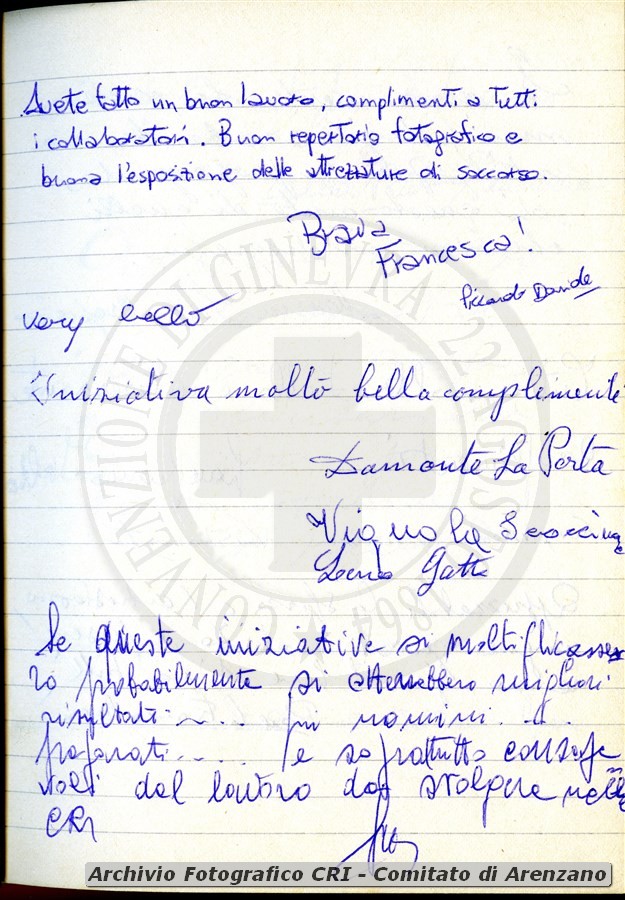 Avete fatto un buon lavoro, complimenti a tutti
i collaboratori. Buon repertorio fotografico e
buona l'esposizione delle attrezzature di soccorso.
Brava
Francesca!
Piccardo Davide
very bello
Iniziativa molto bella complimenti
Damonte La Porta
Vignola
Gatti
Se queste iniziative si moltiplicasse
ro probabilmente si otterrebbero migliori
risultati..... più uomini....
preparati..... e soprattutto consape
voli del lavoro da svolgere nella
CRI
CONVENZIONE DI GINEVRA 22 AGOSTO 1864
Archivio Fotografico CRI - Comitato di Arenzano